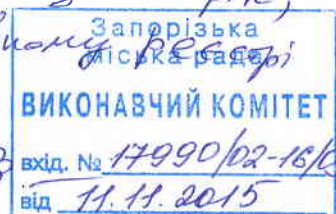 Запорізька
міська рада
реєстрі
ВИКОНАВЧИЙ КОМІТЕТ
вхід. № 17990/02-16/
від 11.11.2015